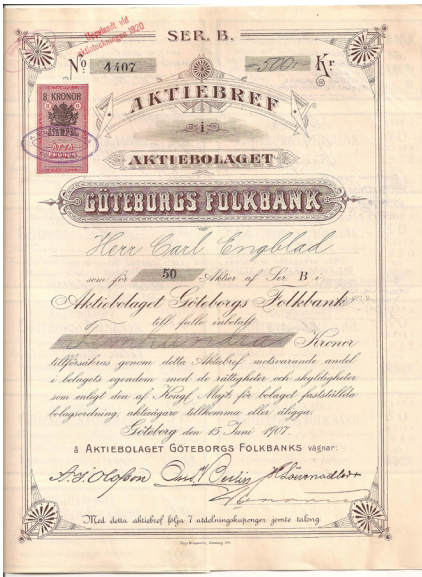 Uppvisadt vid
aktieteckningen 1920
SER. B.
No. 4407 500 Kr
8 KRONOR
STÄMPEL
ÅTTA
KRONOR
AKTIEBREF
i
AKTIEBOLAGET
GÖTEBORGS FOLKBANK
Herr Carl Engblad
som för 50 Aktier af Ser B i
Aktiebolaget Göteborgs Folkbank
till fullo inbetalt
Femhundra Kronor
tillförsäkras genom detta Aktiebref motsvarande andel
i bolagets egendom med de rättigheter och skyldigheter
som enligt den af Kongl. Majt för bolaget fastställda
bolagsordning, aktieägare tillkomma eller åligga.
Göteborg den 15 Juni 1907.
å AKTIEBOLAGET GÖTEBORGS FOLKBANKS vägnar:
Med detta aktiebref följa 7 utdelningskuponger jemte talong.